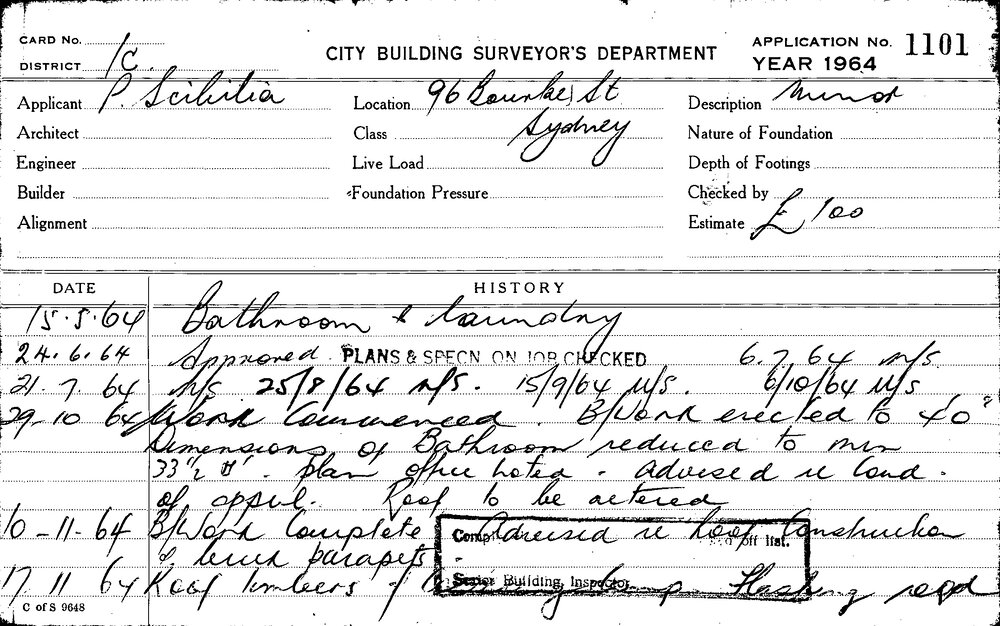 CARD No.
DISTRICT 1C
CITY BUILDING SURVEYOR'S DEPARTMENT
APPLICATION No. 1101
YEAR 1964
Applicant P. Scibilia
Location 96 Bourke St
Sydney
Description Minor
Architect
Class
Nature of Foundation
Engineer
Live Load
Depth of Footings
Builder
Foundation Pressure
Checked by
Alignment
Estimate £100
DATE HISTORY
15.5.64 Bathroom & Laundry
24.6.64 Approved. PLANS & SPECN ON JOB CHECKED 6.7.64 N/S.
21.7.64 N/S 25/8/64 N/S. 15/9/64 N/S. 6/10/64 N/S
29-10 64 Work Commenced. B/Work erected to 4'0"
Dimensions of Bathroom reduced to min
33 1/2 plan office noted - advised re Cond.
of appvl. Roof to be altered
10-11-64 B/Work Complete Advised re Roof Construction
& brick parapets
17 11 64 Roof timbers up Flashing reqd
off list.
Senior Building Inspector
C of S 9648